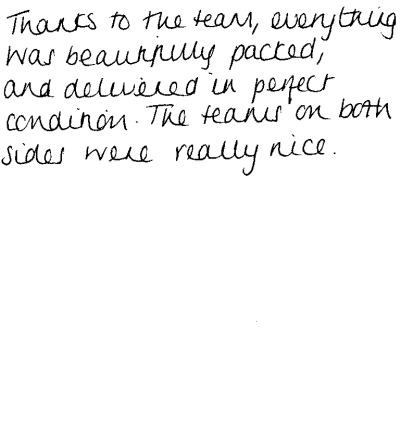 Thanks to the team, everything
was beautifully packed,
and delivered in perfect
condition. The teams on both
sides were really nice.